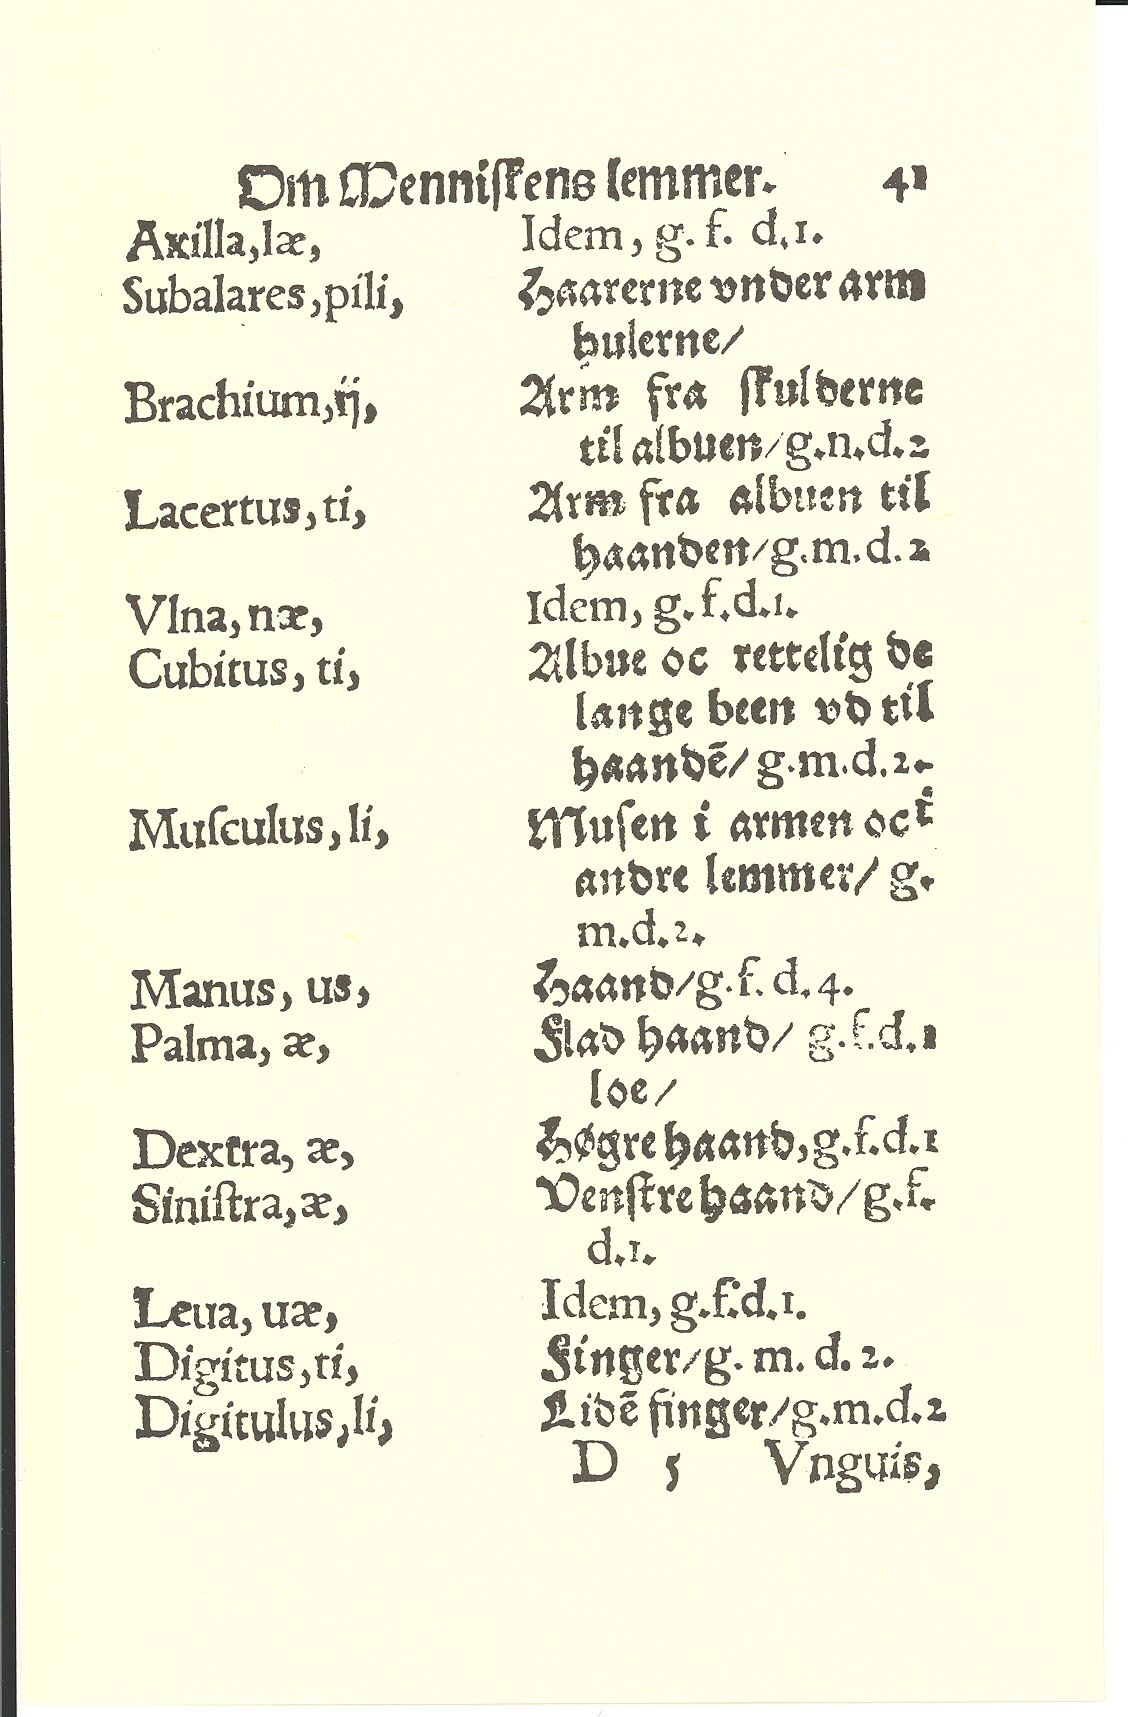 Om Menniſkens lemmer. 41
Axilla,læ, Idem, g. f. d.1.
Subalares,pili, Haarerne vnder arm
hulerne/
Brachium,ij, Arm fra ſkulderne
til albuen/g.n.d.2
Lacertus,ti, Arm fra albuen til
haanden/g.m.d.2
Vlna,næ, Idem, g.f.d.1.
Cubitus, ti, Albue oc rettelig de
lange been vd til
haandē/g.m.d.2.
Muſculus,li, Muſen i armen oc i
andre lemmer/ g.
m.d.2.
Manus, us, Haand/g.f.d.4.
Palma, æ, Flad haand/ g.f.d.1
loe/
Dextra, æ, Høgre haand,g.f.d.1
Siniſtra,æ, Venſtre haand/g.f.
d.1.
Leua, uæ, Idem, g.f.d.1.
Digitus,ti, Finger/g. m. d. 2.
Digitulus,li, Lidē finger/g.m.d.2
D 5 Vnguis,